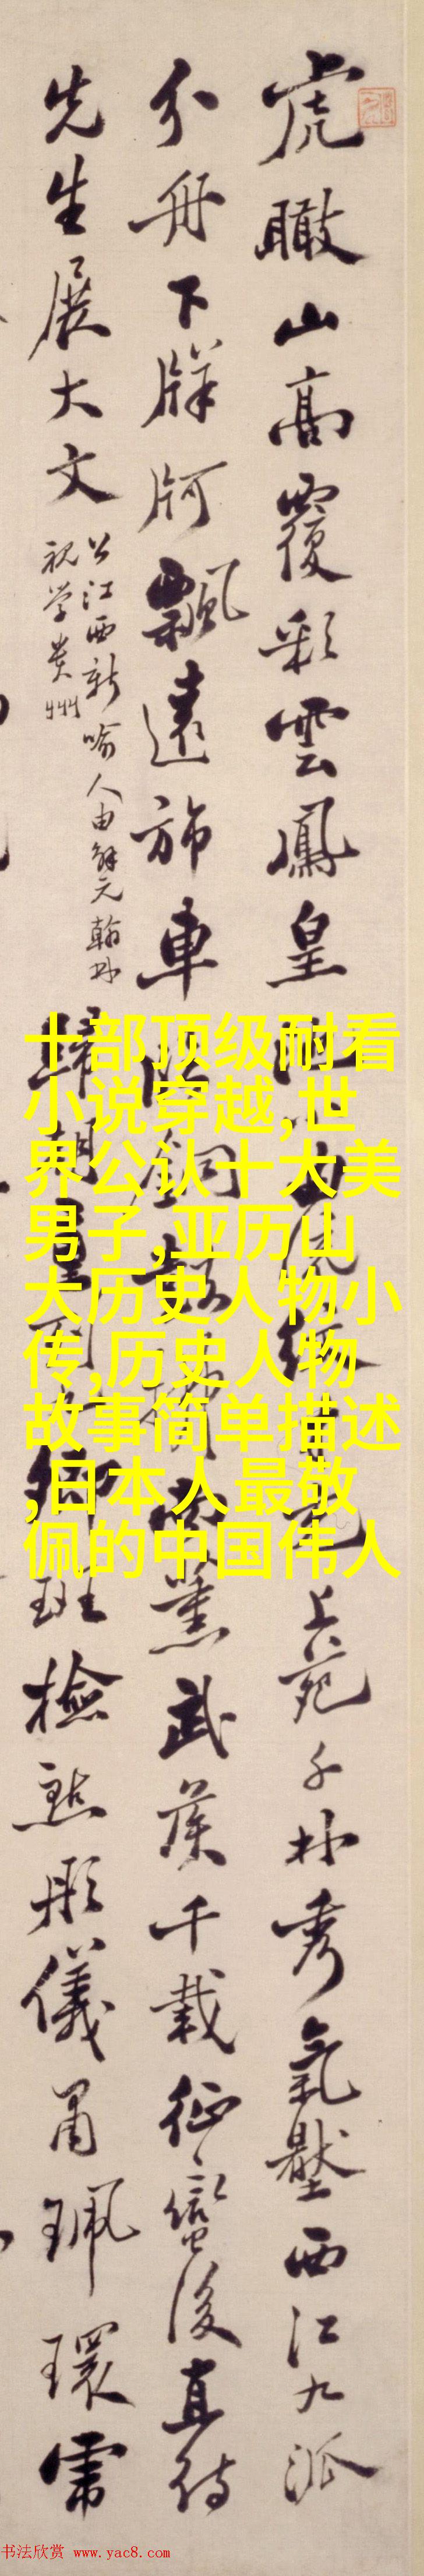 虎瞰山高覆彩雲鳳皇
上苑千林秀氣壓西江九派
分舟下牂牁飄遠斾車
銅鼓
薰武侯千載征蠻後直待
先生展大文
公江西新喻人由解元翰林
視學貴州
歸朝
卿班檢點彤儀肅珮環
十部顶级耐看
小说穿越,世
界公认十大美
男子,亚历山
大历史人物小
传,历史人物
故事简单描述
,日本人最敬
佩的中国伟人
书法欣赏 www.yac8.com